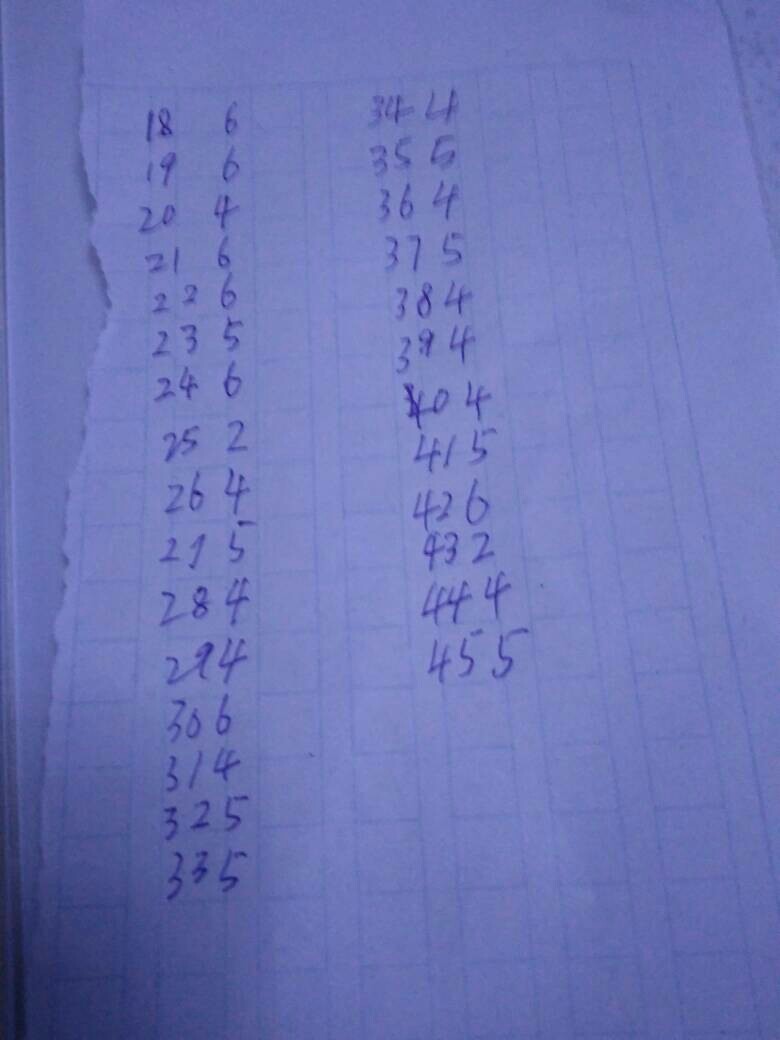 18 6
19 6
20 4
21 6
22 6
23 5
24 6
25 2
26 4
27 5
28 4
29 4
30 6
31 4
32 5
33 5
34 4
35 5
36 4
37 5
38 4
39 4
40 4
41 5
42 6
43 2
44 4
45 5